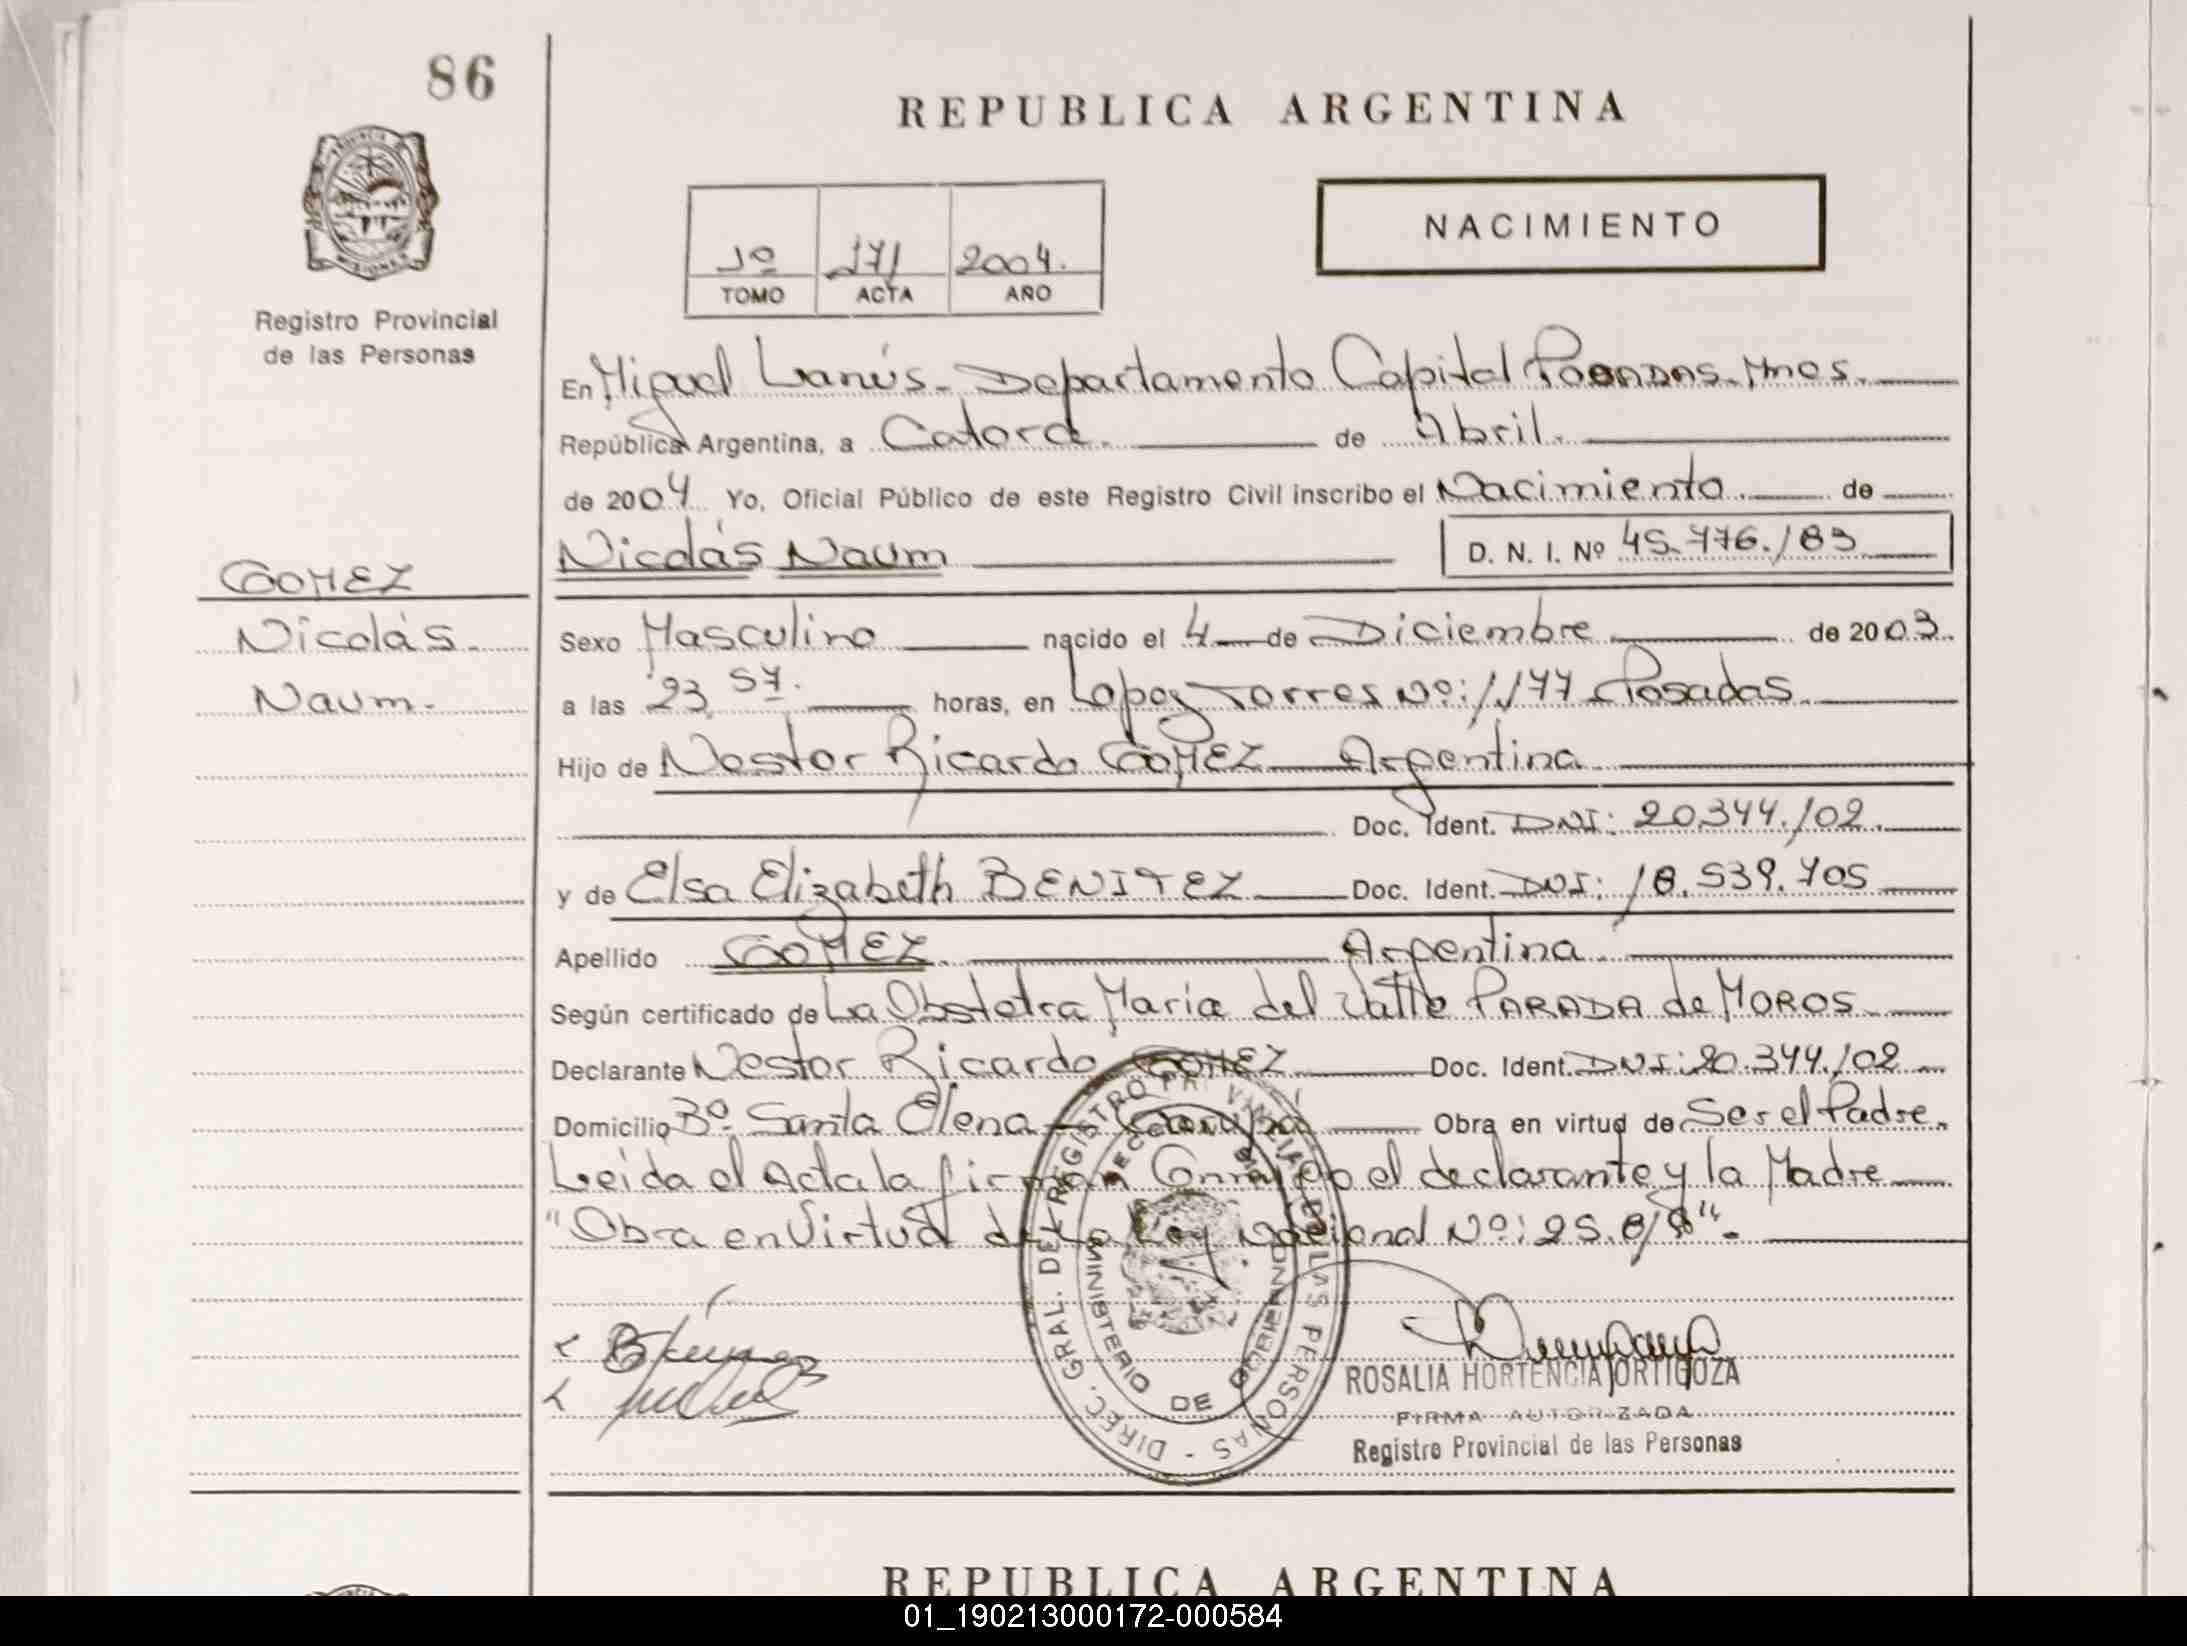 86
REPUBLICA ARGENTINA
PROVINCIA D
MISIONES
Registro Provincial
de las Personas
NACIMIENTO
1º 171 2004.
TOMO ACTA AÑO
En Miguel Lanús - Departamento Capital Posadas - Mnes.
República Argentina, a Catorce. de Abril.
de 2004 Yo, Oficial Público de este Registro Civil inscribo el Nacimiento. de
Nicolás Naum D. N. I. Nº 45.776.183
GOMEZ
Nicolás.
Naum.
Sexo Masculino nacido el 4 de Diciembre de 2003.
a las 23,57. horas, en Lopez Torres Nº: 1.177 Posadas.
Hijo de Nestor Ricardo GOMEZ Argentina
Doc. Ident. DNI: 20.344.102.
y de Elsa Elizabeth BENITEZ Doc. Ident. DNI: 18.539.705
Apellido GOMEZ. Argentina.
Según certificado de La Obstetra Maria del Valle PARADA de MOROS.
Declarante Nestor Ricardo GOMEZ Doc. Ident. DNI: 20.344.102
Domicilio Bº. Santa Elena - Garupá Obra en virtud de Ser el Padre.
Leida el Acta la firman Conmigo el declarante y la Madre
"Obra en Virtud de La Ley Nacional Nº: 25.818".
DIREC. GRAL. DEL REGISTRO PROVINCIAL DE LAS PERSONAS -
MINISTERIO DE GOBIERNO
ROSALIA HORTENCIA ORTIGOZA
FIRMA AUTORIZADA
Registro Provincial de las Personas
REPUBLICA ARGENTINA
01_190213000172-000584